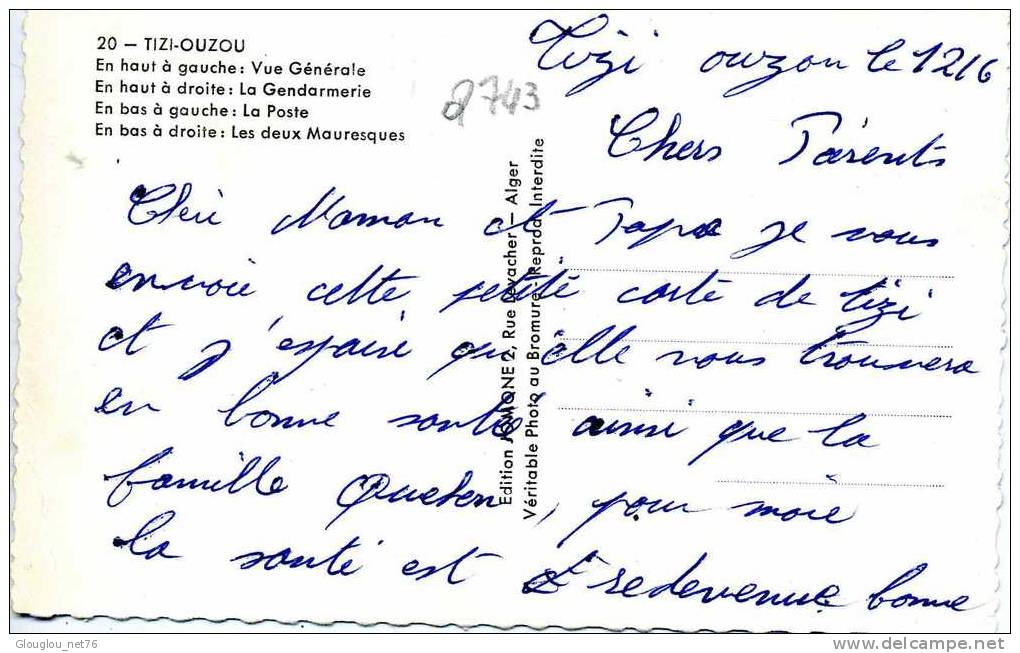 20 – TIZI-OUZOU
En haut à gauche : Vue Générale
En haut à droite : La Gendarmerie
En bas à gauche : La Poste
En bas à droite : Les deux Mauresques
2743
Tizi ouzou le 12/6
Chers Parents
Chèri Maman et Papa je vous
envoie cette petite carte de tizi
et j'espaire qu'elle vous trouvera
en bonne santé ainsi que la
famille , pour moie
la santé est redevenue bonne
Edition JOMONE 2, Rue Levacher — Alger
Véritable Photo au Bromure - Reprod. Interdite
Glouglou_net76
www.delcampe.net